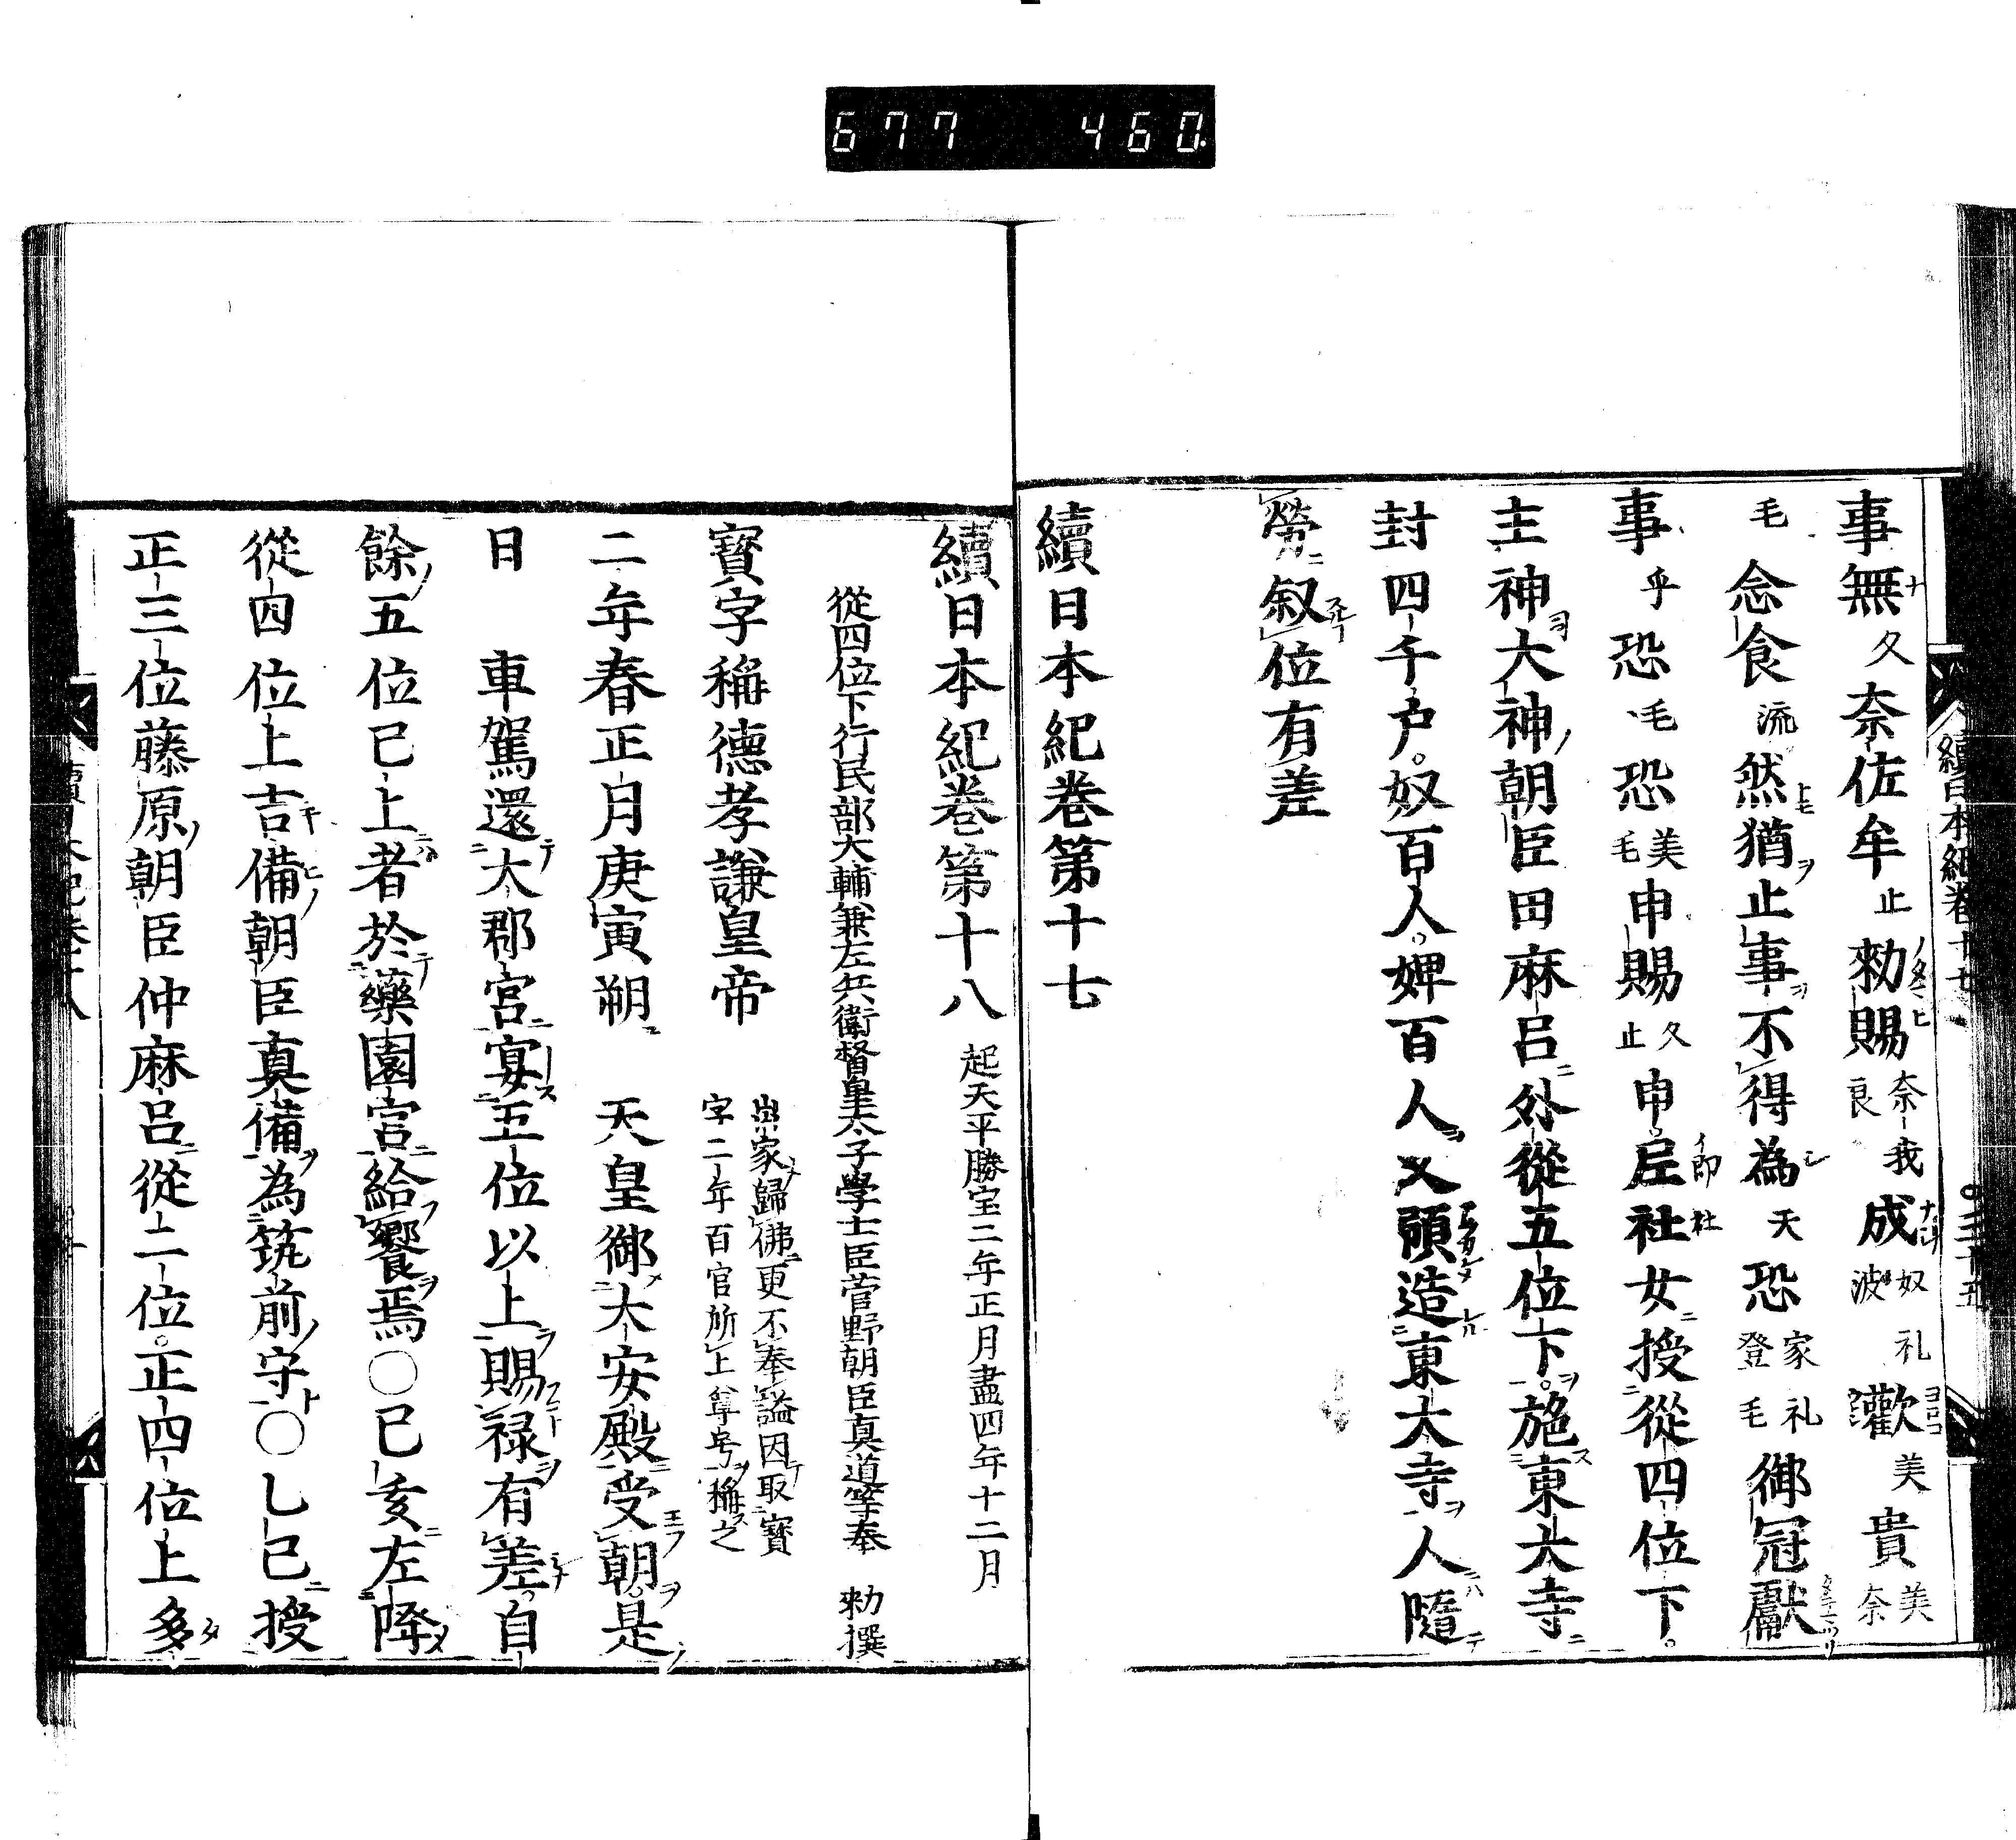 677 460
續日本紀卷十七
事無久奈佐牟止勅賜奈良我成奴波礼歡美貴美奈
毛念食流然猶止事不得為天恐家登礼毛御冠獻
事乎恐毛恐美毛申賜久止申。𡰱社女授從四位下。
主神大神朝臣田麻呂外從五位下。施東大寺
封四千戸。奴百人。婢百人又預造東大寺人隨
勞叙位有差
續日本紀卷第十七
續日本紀卷第十八 起天平勝宝二年正月盡四年十二月
從四位下行民部大輔兼左兵衛督皇太子學士臣菅野朝臣真道等奉 勅撰
寳字稱德孝謙皇帝 出家歸佛更不奉謚因取寳字二年百官所上尊号稱之
二年春正月庚寅朔 天皇御大安殿受朝。是
日 車駕還大郡宮宴五位以上賜禄有差。自
餘五位已上者於藥園宮給饗焉○己亥左降
從四位上吉備朝臣真備為筑前守○乙巳授
正三位藤原朝臣仲麻呂從二位。正四位上多